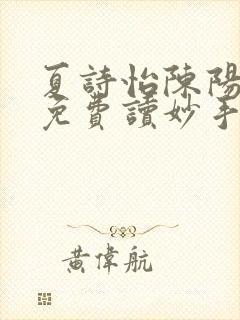 夏詩怡陳陽
免費讀妙手
黃偉航